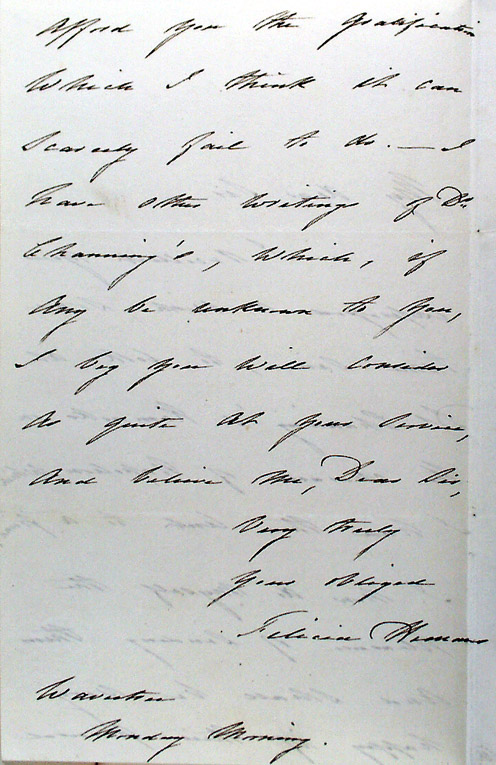 afford you the gratification
which I think it can
scarcely fail to do. — I
have other writings of Dr.
Channing's, which, if
any be unknown to you,
I beg you will consider
as quite at your service,
and believe me, Dear Sir,
Very truly
Your obliged
Felicia Hemans
Wavertree
Monday Morning.